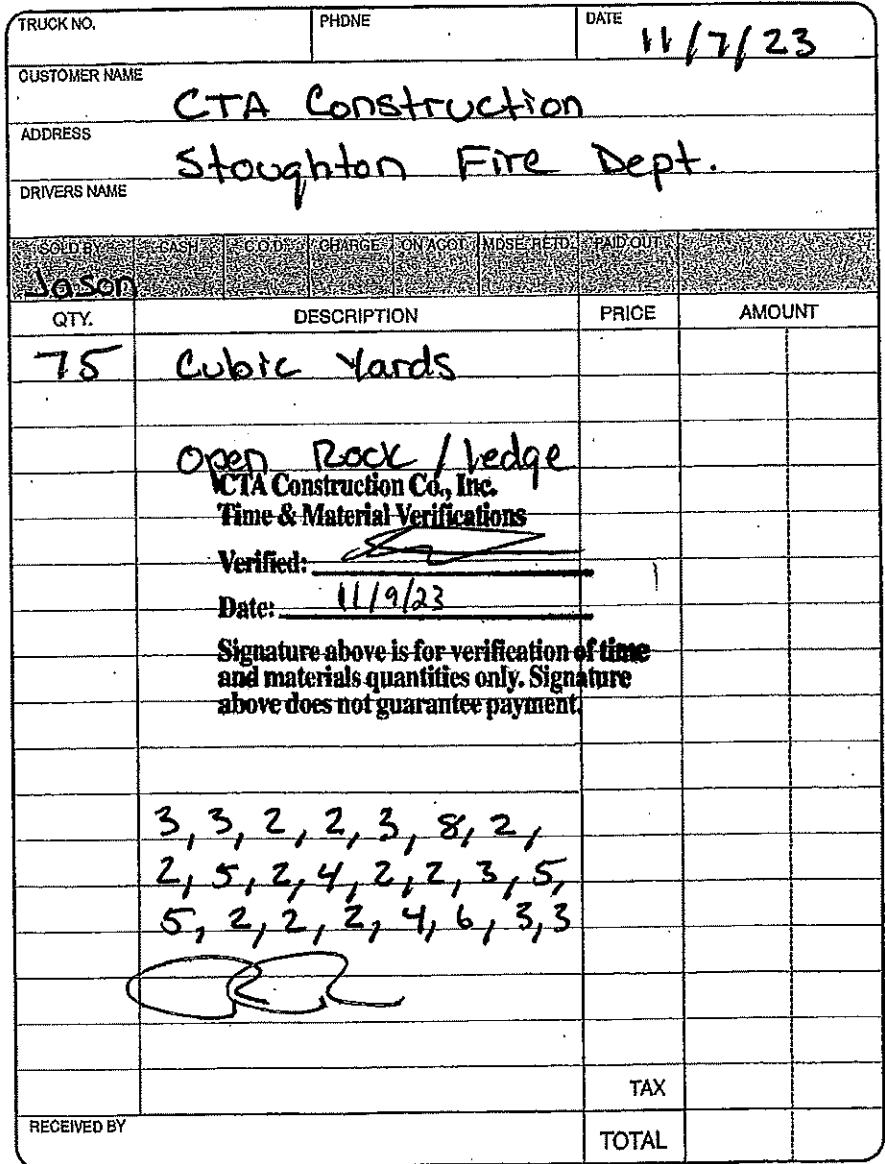 TRUCK NO. PHONE DATE 11/7/23
CUSTOMER NAME
CTA Construction
ADDRESS
Stoughton Fire Dept.
DRIVERS NAME
SOLD BY CASH C.O.D. CHARGE ON ACCT. MDSE. RETD. PAID OUT
Jason
QTY. DESCRIPTION PRICE AMOUNT
75 Cubic Yards
Open Rock / Ledge
CTA Construction Co., Inc.
Time & Material Verifications
Verified:
Date: 11/9/23
Signature above is for verification of time
and materials quantities only. Signature
above does not guarantee payment.
3, 3, 2, 2, 3, 8, 2,
2, 5, 2, 4, 2, 2, 3, 5,
5, 2, 2, 2, 4, 6, 3, 3
TAX
RECEIVED BY TOTAL